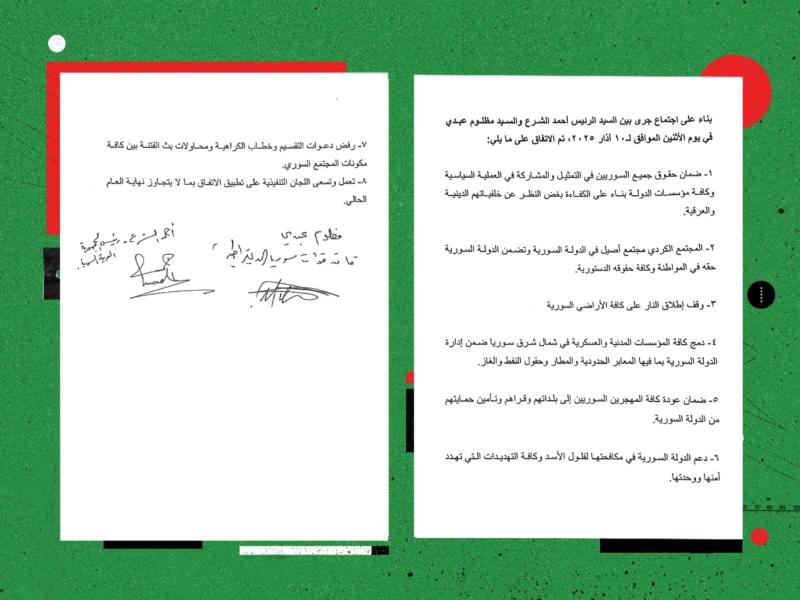 بناء على اجتماع جرى بين السيد الرئيس أحمد الشرع والسيد مظلوم عبدي
في يوم الأثنين الموافق لـ١٠ آذار ٢٠٢٥، تم الاتفاق على ما يلي:
١- ضمان حقوق جميع السوريين في التمثيل والمشاركة في العملية السياسية
وكافة مؤسسات الدولة بناء على الكفاءة بغض النظر عن خلفياتهم الدينية
والعرقية.
٢- المجتمع الكردي مجتمع أصيل في الدولة السورية وتضمن الدولة السورية
حقه في المواطنة وكافة حقوقه الدستورية.
٣- وقف إطلاق النار على كافة الأراضي السورية
٤- دمج كافة المؤسسات المدنية والعسكرية في شمال شرق سوريا ضمن إدارة
الدولة السورية بما فيها المعابر الحدودية والمطار وحقول النفط والغاز.
٥- ضمان عودة كافة المهجرين السوريين إلى بلداتهم وقراهم وتأمين حمايتهم
من الدولة السورية.
٦- دعم الدولة السورية في مكافحتها لفلول الأسد وكافة التهديدات التي تهدد
أمنها ووحدتها.
٧- رفض دعوات التقسيم وخطاب الكراهية ومحاولات بث الفتنة بين كافة
مكونات المجتمع السوري.
٨- تعمل وتسعى اللجان التنفيذية على تطبيق الاتفاق بما لا يتجاوز نهاية العام
الحالي.
مظلوم عبدي
قائد قوات سوريا الديمقراطية
أحمد الشرع - رئيس الجمهورية
العربية السورية